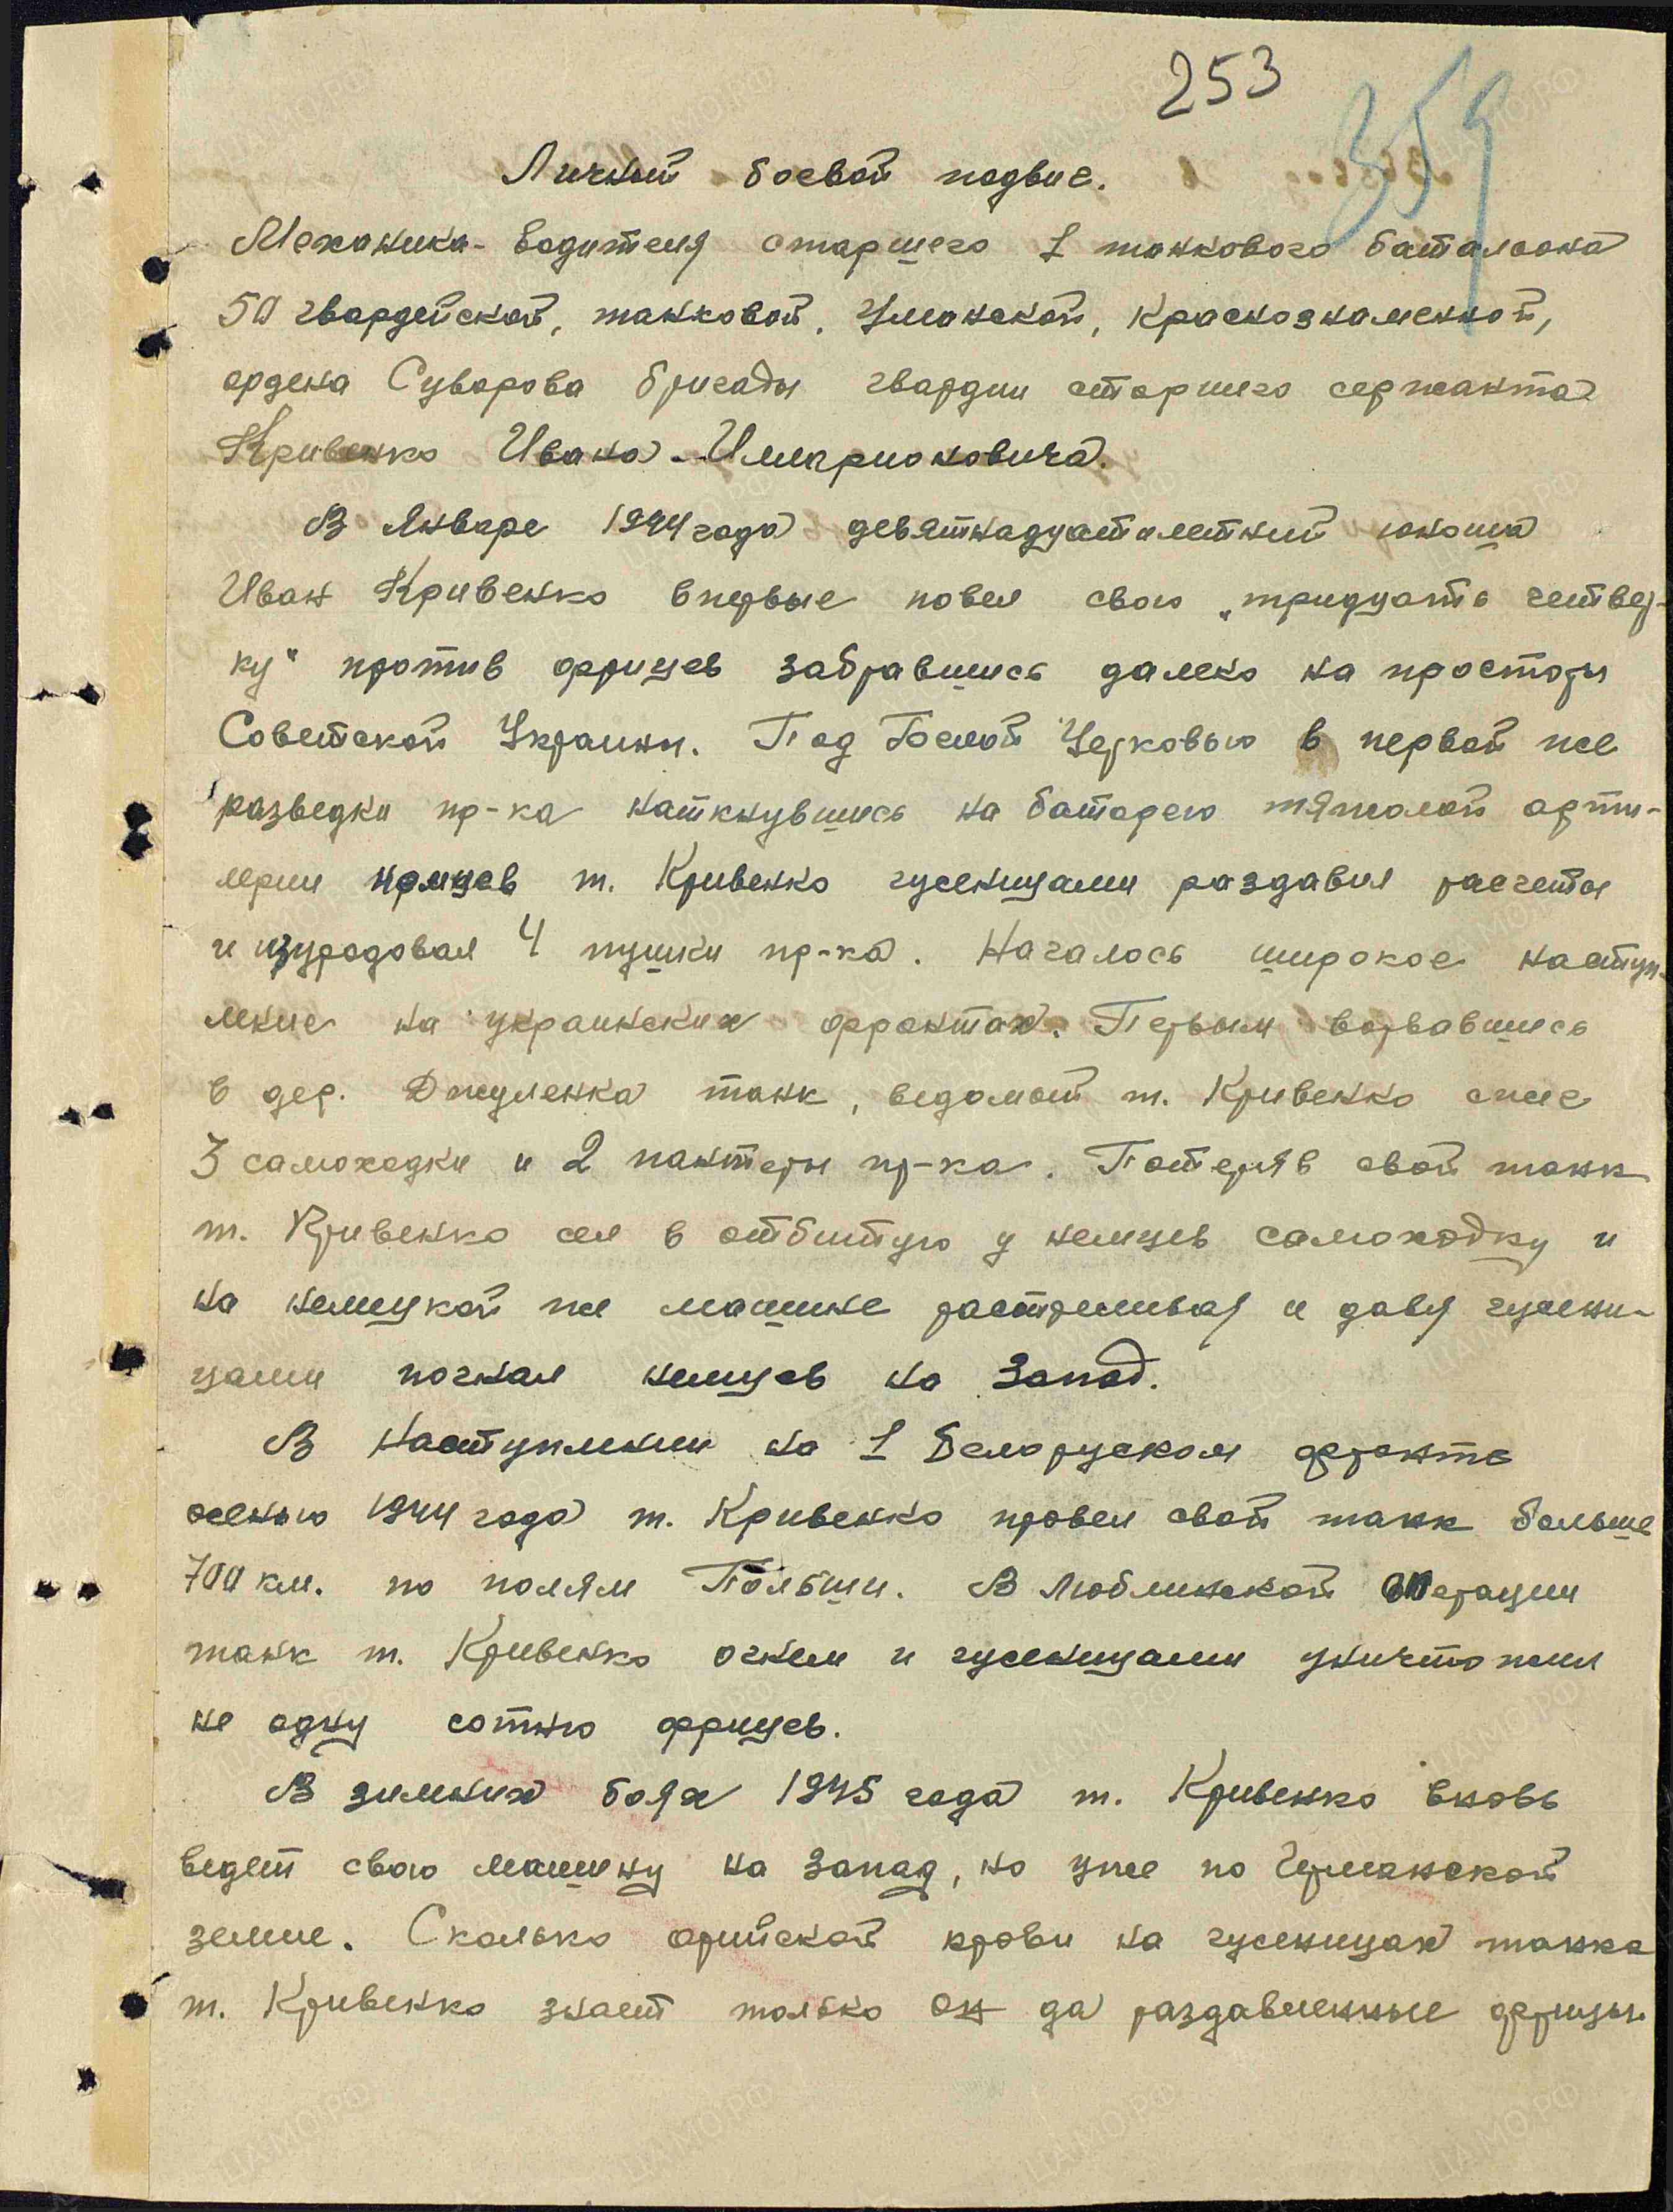 253
359
Личный боевой подвиг.
Механика-водителя старшего 1 танкового батальона
50 гвардейской, танковой, Уманской, Краснознаменной,
ордена Суворова бригады гвардии старшего сержанта
Кривенко Ивана Илларионовича.
В Январе 1944 года девятнадцатилетний юноша
Иван Кривенко впервые повел свою „тридцать четвер-
ку“ против фрицев забравшись далеко на просторы
Советской Украины. Под Белой Церковью в первой же
разведки пр-ка наткнувшись на батарею тяжолой арти-
лерии немцев т. Кривенко гусеницами раздавил расчеты
и изуродовал 4 пушки пр-ка. Началось широкое наступ-
ление на украинских фронтах. Первым ворвавшись
в дер. Джуленка танк, ведомый т. Кривенко сжег
3 самоходки и 2 пантеры пр-ка. Потеряв свой танк
т. Кривенко сел в отбитую у немцев самоходку и
на немецкой же машине растреливая и давя гусени-
цами погнал немцев на Запад.
В наступлении на 1 Белоруском фронте
осенью 1944 года т. Кривенко провел свой танк больше
700 км. по полям Польши. В Люблинской операции
танк т. Кривенко огнем и гусеницами уничтожил
не одну сотню фрицев.
В зимних боях 1945 года т. Кривенко вновь
ведет свою машину на запад, но уже по Германской
земле. Сколько арийской крови на гусеницах танка
т. Кривенко знает только он да раздавленные фрицы.
ЦАМО.РФ